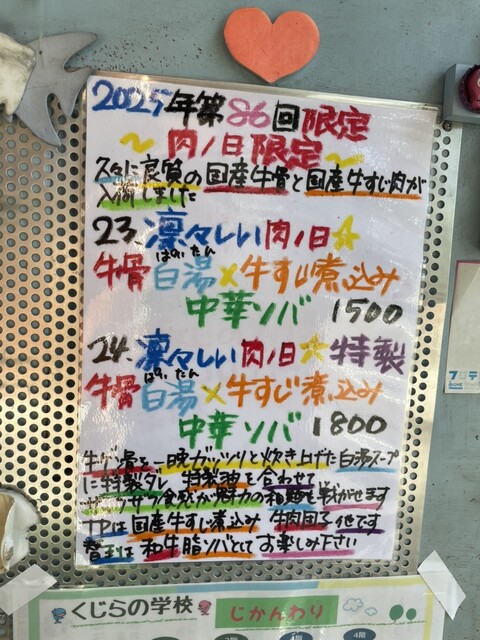 2025年第86回限定
〜肉ノ日限定〜
久々に良質の国産牛骨と国産牛すじ肉が
入荷しました
23.凛々しい肉ノ日☆
ぱいたん
牛骨白湯×牛すじ煮込み
中華ソバ 1500
24.凛々しい肉ノ日☆特製
ぱいたん
牛骨白湯×牛すじ煮込み
中華ソバ 1800
牛ゲン骨を一晩ガッツリと炊き上げた白湯スープ
に特製ダレ 特製油を合わせて
サクサク食感が魅力の和麺を戦がせます
TPは国産牛すじ煮込み 牛肉団子他です
替玉は和牛脂ソバとしてお楽しみ下さい
くじらの学校 じかんわり